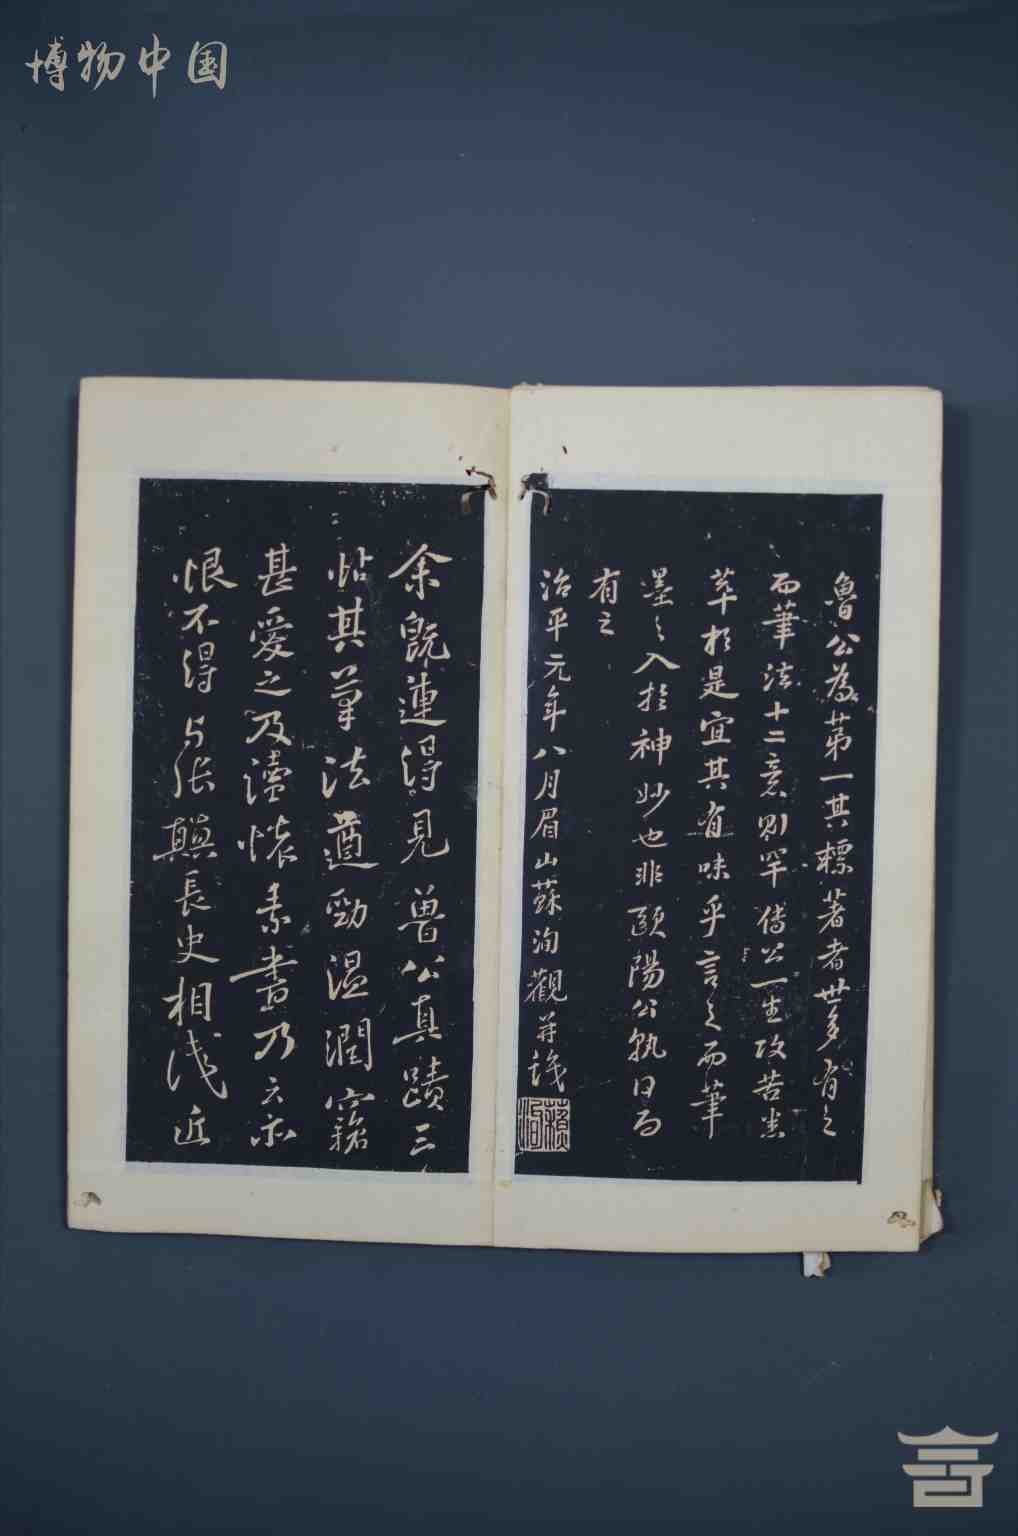 博物中国
魯公為第一其標著者世多有之
而筆法十二意則罕傳公一生攻苦悉
萃於是宜其有味乎言之而筆
墨之入於神妙也非歐陽公孰曰而
有之
治平元年八月眉山蘇洵觀并識
余既蓮得見魯公真蹟三
帖其筆法遒勁溫潤竊
甚愛之及讀懷素書乃云亦
恨不得与張顛長史相識近